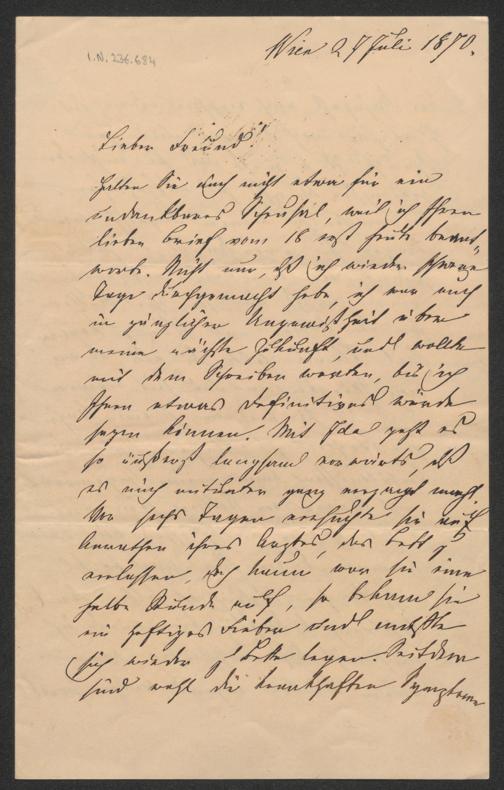 I.N. 236.684
Wien 27 Juli 1870.
Lieber Freund!
Halten Sie mich nicht etwa für ein
undankbares Scheusal, weil ich Ihren
lieben Brief vom 18 erst heute beant-
worte. Nicht nur, daß ich wieder schwere
Tage durchgemacht habe, ich war auch
in gänzlicher Ungewißheit über
meine nächste Zukunft, und wollte
mit dem Schreiben warten, bis ich
Ihnen etwas Definitives würde
sagen können. Mit Ida geht es
so äußerst langsam vorwärts, daß
es mich mitunter ganz verzagt macht.
Vor sechs Tagen versuchte sie auf
Anrathen ihres Arztes, das Bett zu
verlassen, doch kaum war sie eine
halbe Stunde auf, so bekam sie
ein heftiges Fieber und mußte
sich wieder zu Bette legen. Seitdem
sind wohl die krankhaften Symptome